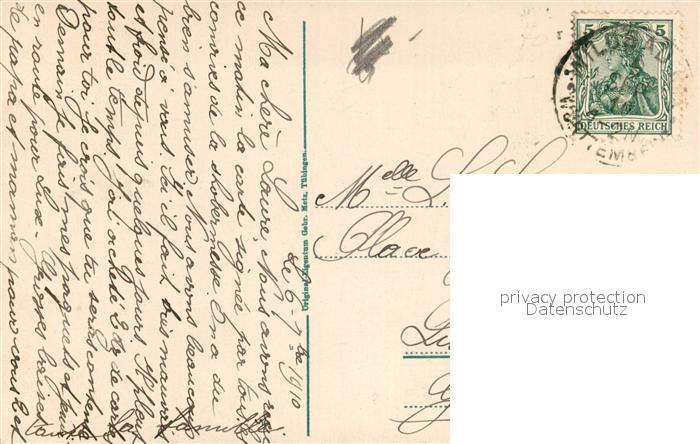 le 6-7bre 1910
Ma chère Laure, Nous avons reçu
ce matin la carte signée par toutes
convives de la Shobermesse. On a du
bien s'amuser. Nous avons beaucoup
pensé à vous. Ici il fait très mauvais
et froid depuis quelques jours. Il pleut
tout le temps. J'ai acheté de cartes
pour toi. Je crois que tu seras contente
Demain je fais mes paquets et jeudi
en route pour Lux. Grosses baises
de papa et maman pour vous et
toute la famille.
Original-Eigentum Gebr. Metz, Tübingen.
5 5
DEUTSCHES REICH
WILDBAD
Melle L.
Place
privacy protection
Datenschutz